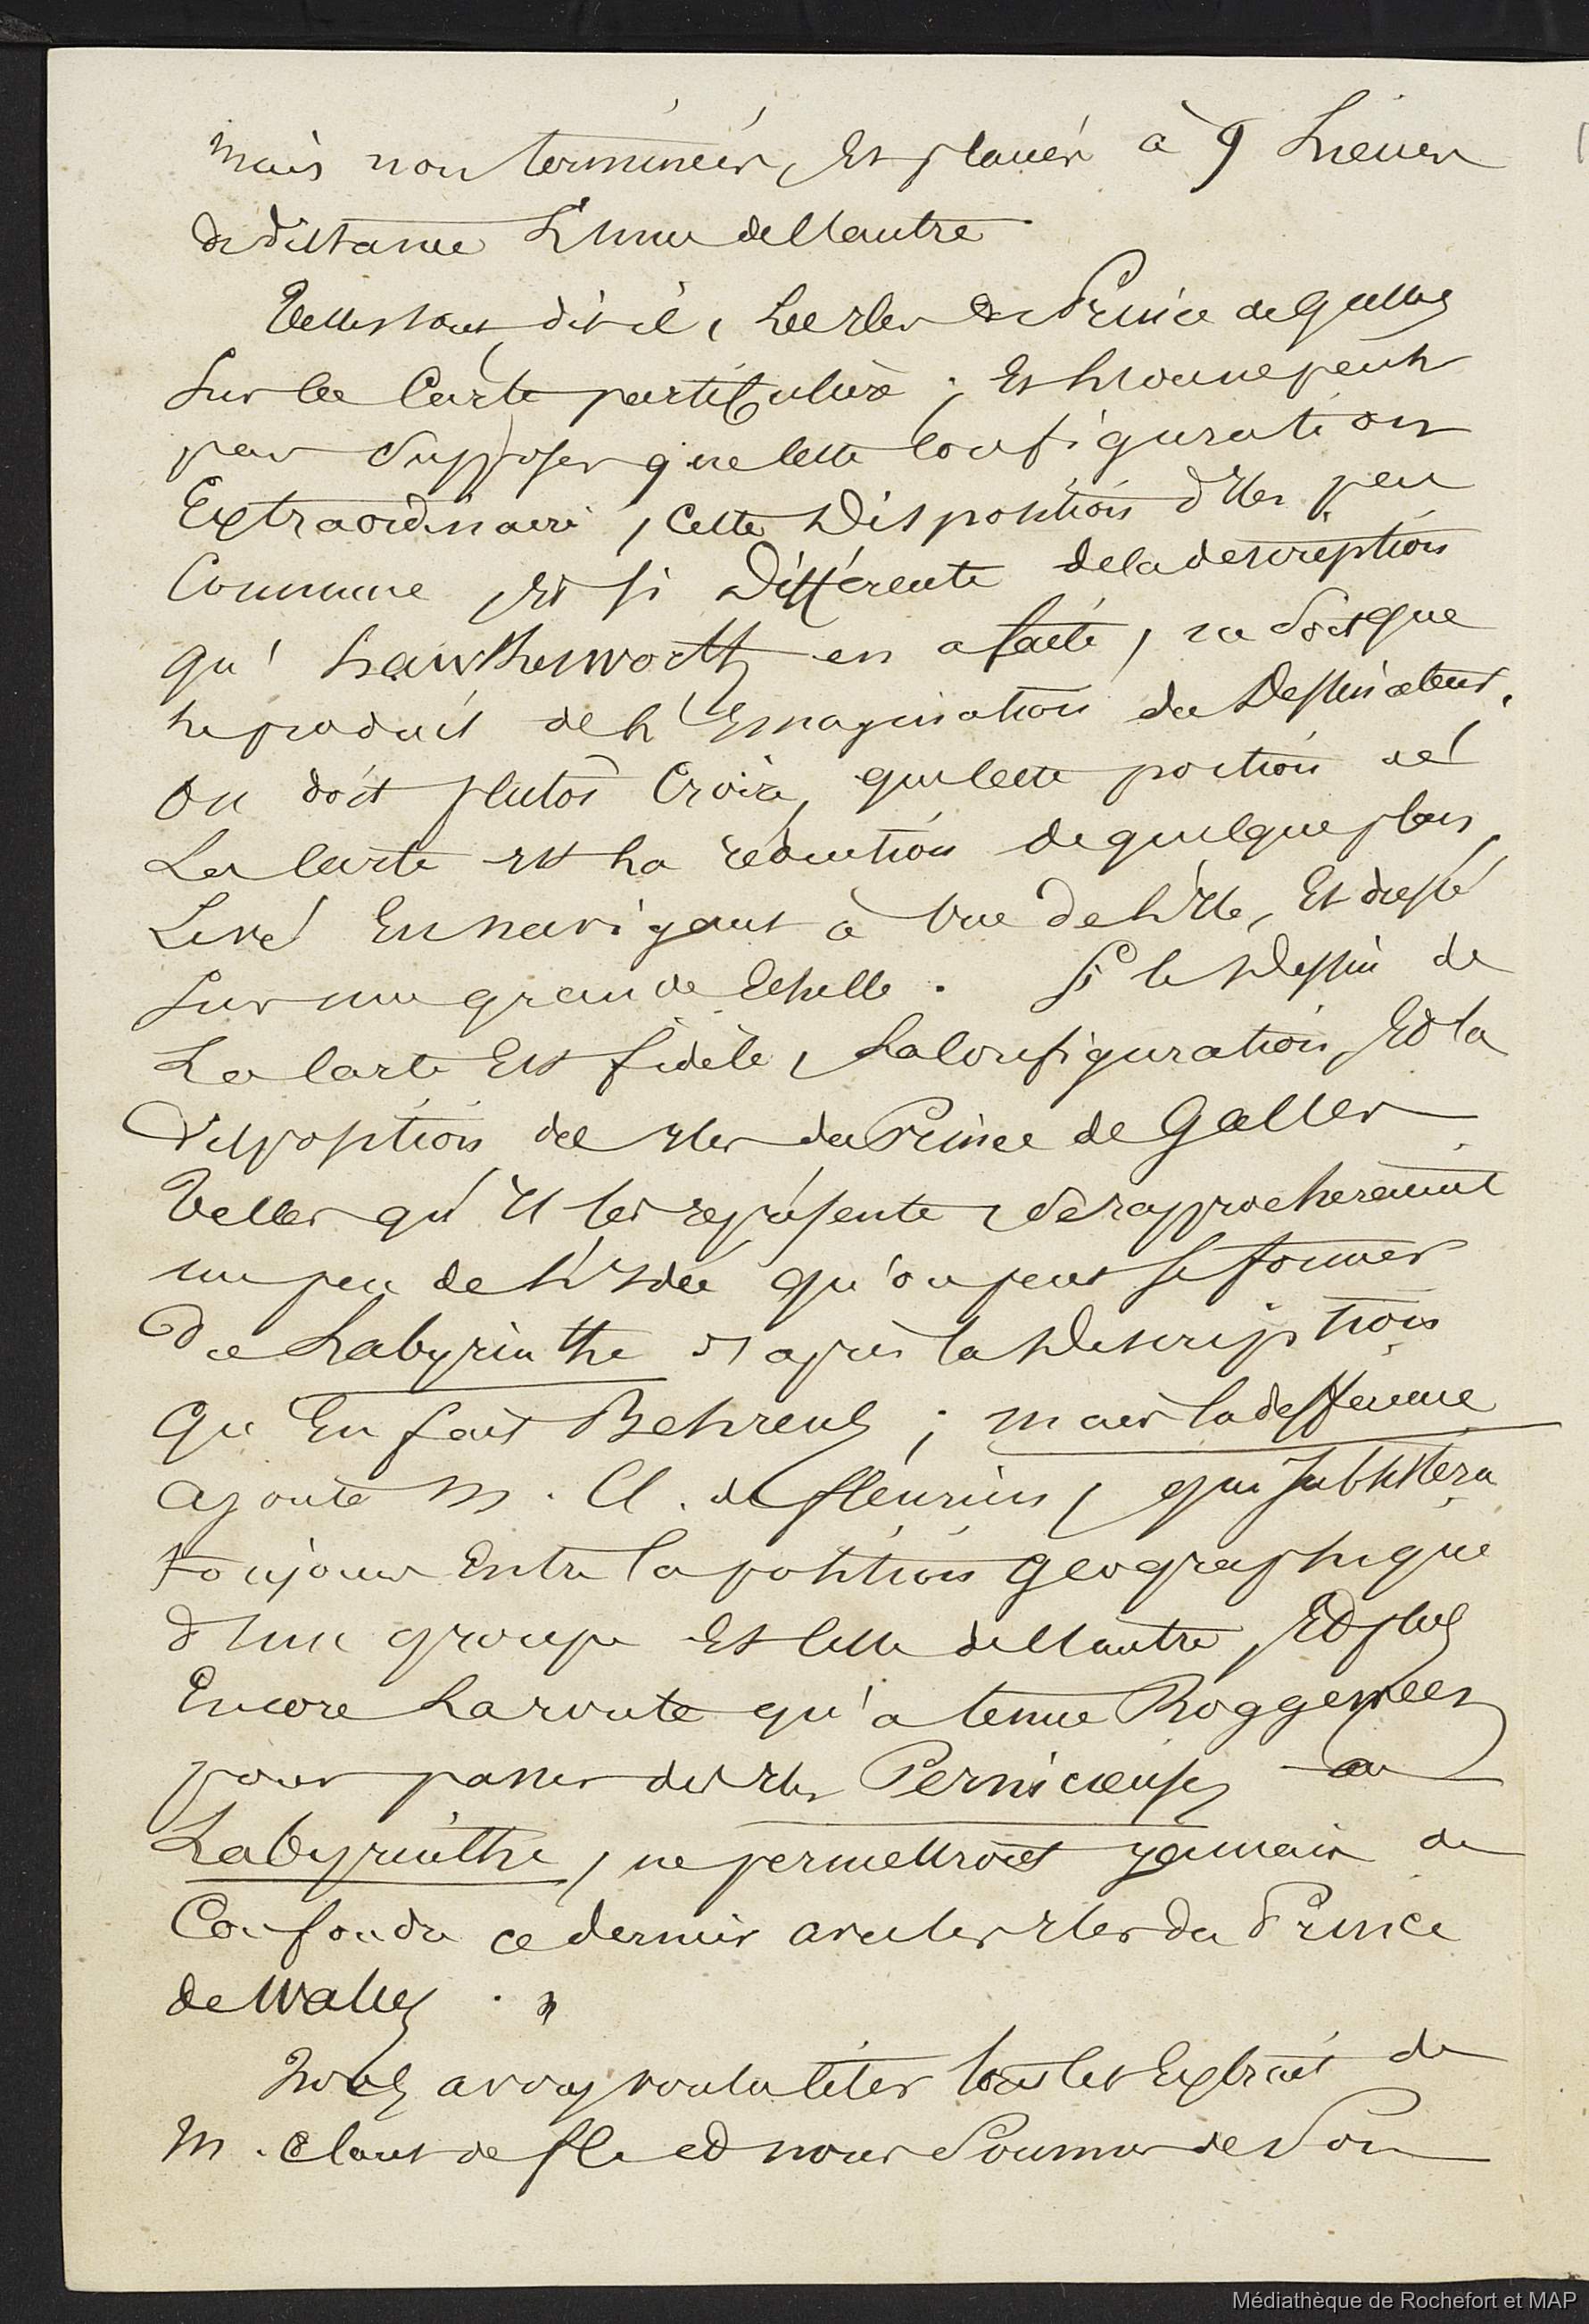 mais non terminées, Et placées à 9 Lieues
de distance L'une de L'autre.
Telles sont, dit il, Les Iles du Prince de Galles
Sur la Carte particulière ; Et L'on ne peut
pas Supposer que cette Configuration
Extraordinaire, cette Disposition d'Iles peu
Commune Et si Différente de la description
qu' hawkesworth en a faite, ne soit que
le produit de L'Imagination du Dessinateur.
on doit plutôt Croire, que cette portion de
La Carte est La réduction de quelque plan
Levé En navigant à vue de L'Ile, Et dressé
Sur une grande Echelle. Si le Dessin de
La Carte Est fidèle, La Configuration Et la
Disposition des Iles du Prince de Galles
Telles qu'il les représente, Se rapprocheraient
un peu de L'Idée qu'on peut se former
du Labyrinthe d'après la Description
Qu'En fait Behrens ; mais la différence
ajoute M. Cl. de fleurieu, qui subsistera
toujours Entre la position géographique
d'un groupe Et celle de L'autre, Et plus
Encore La route qu'a tenue Roggeween
pour passer des Iles Pernicieuses au
Labyrinthe, ne permettroit jamais de
Confondre ce dernier avec les Iles du Prince
de Walles. "
Nous avons voulu citer tous les Extraits de
M. Claret de fl. et nous Sommes de Son